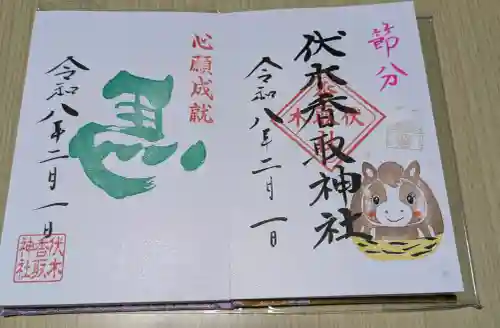 節分
伏木香取神社
伏木
令和八年二月一日
心願成就
馬
令和八年二月一日
伏木
香取
神社